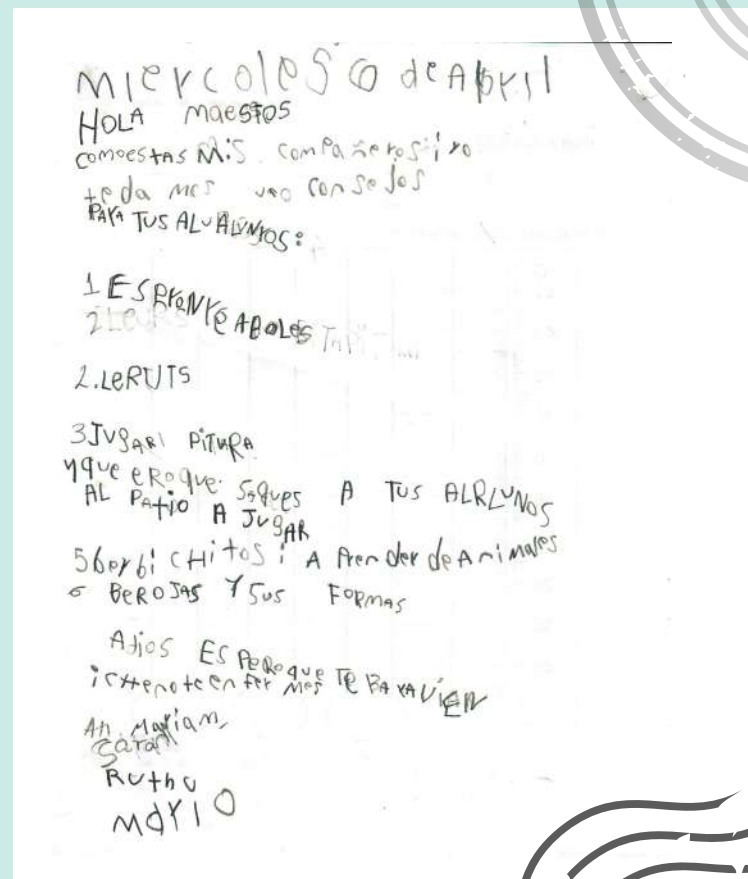 MIErcoleS 6 de ABril
HOLA maestos
comoestAs MiS compañeros i yo
te da mes uno consejos
PARA TUS ALUALUNYOS:
1 ESPRONRE ABOLES
2.LeRUTS
3 JUgARi PiTURA
Yque eRoque sAques A TUS ALRLUNOS
AL PAtio A JUgAR
5 berbiCHitos i A PrenderdeAnimales
6 BEROJAS Y Sus FORMAS
Adios ESPeRoque TE BAYAVIEN
iCHenoteenfer mes
An. Mariam,
Sarah
Ruthu
MaYIO